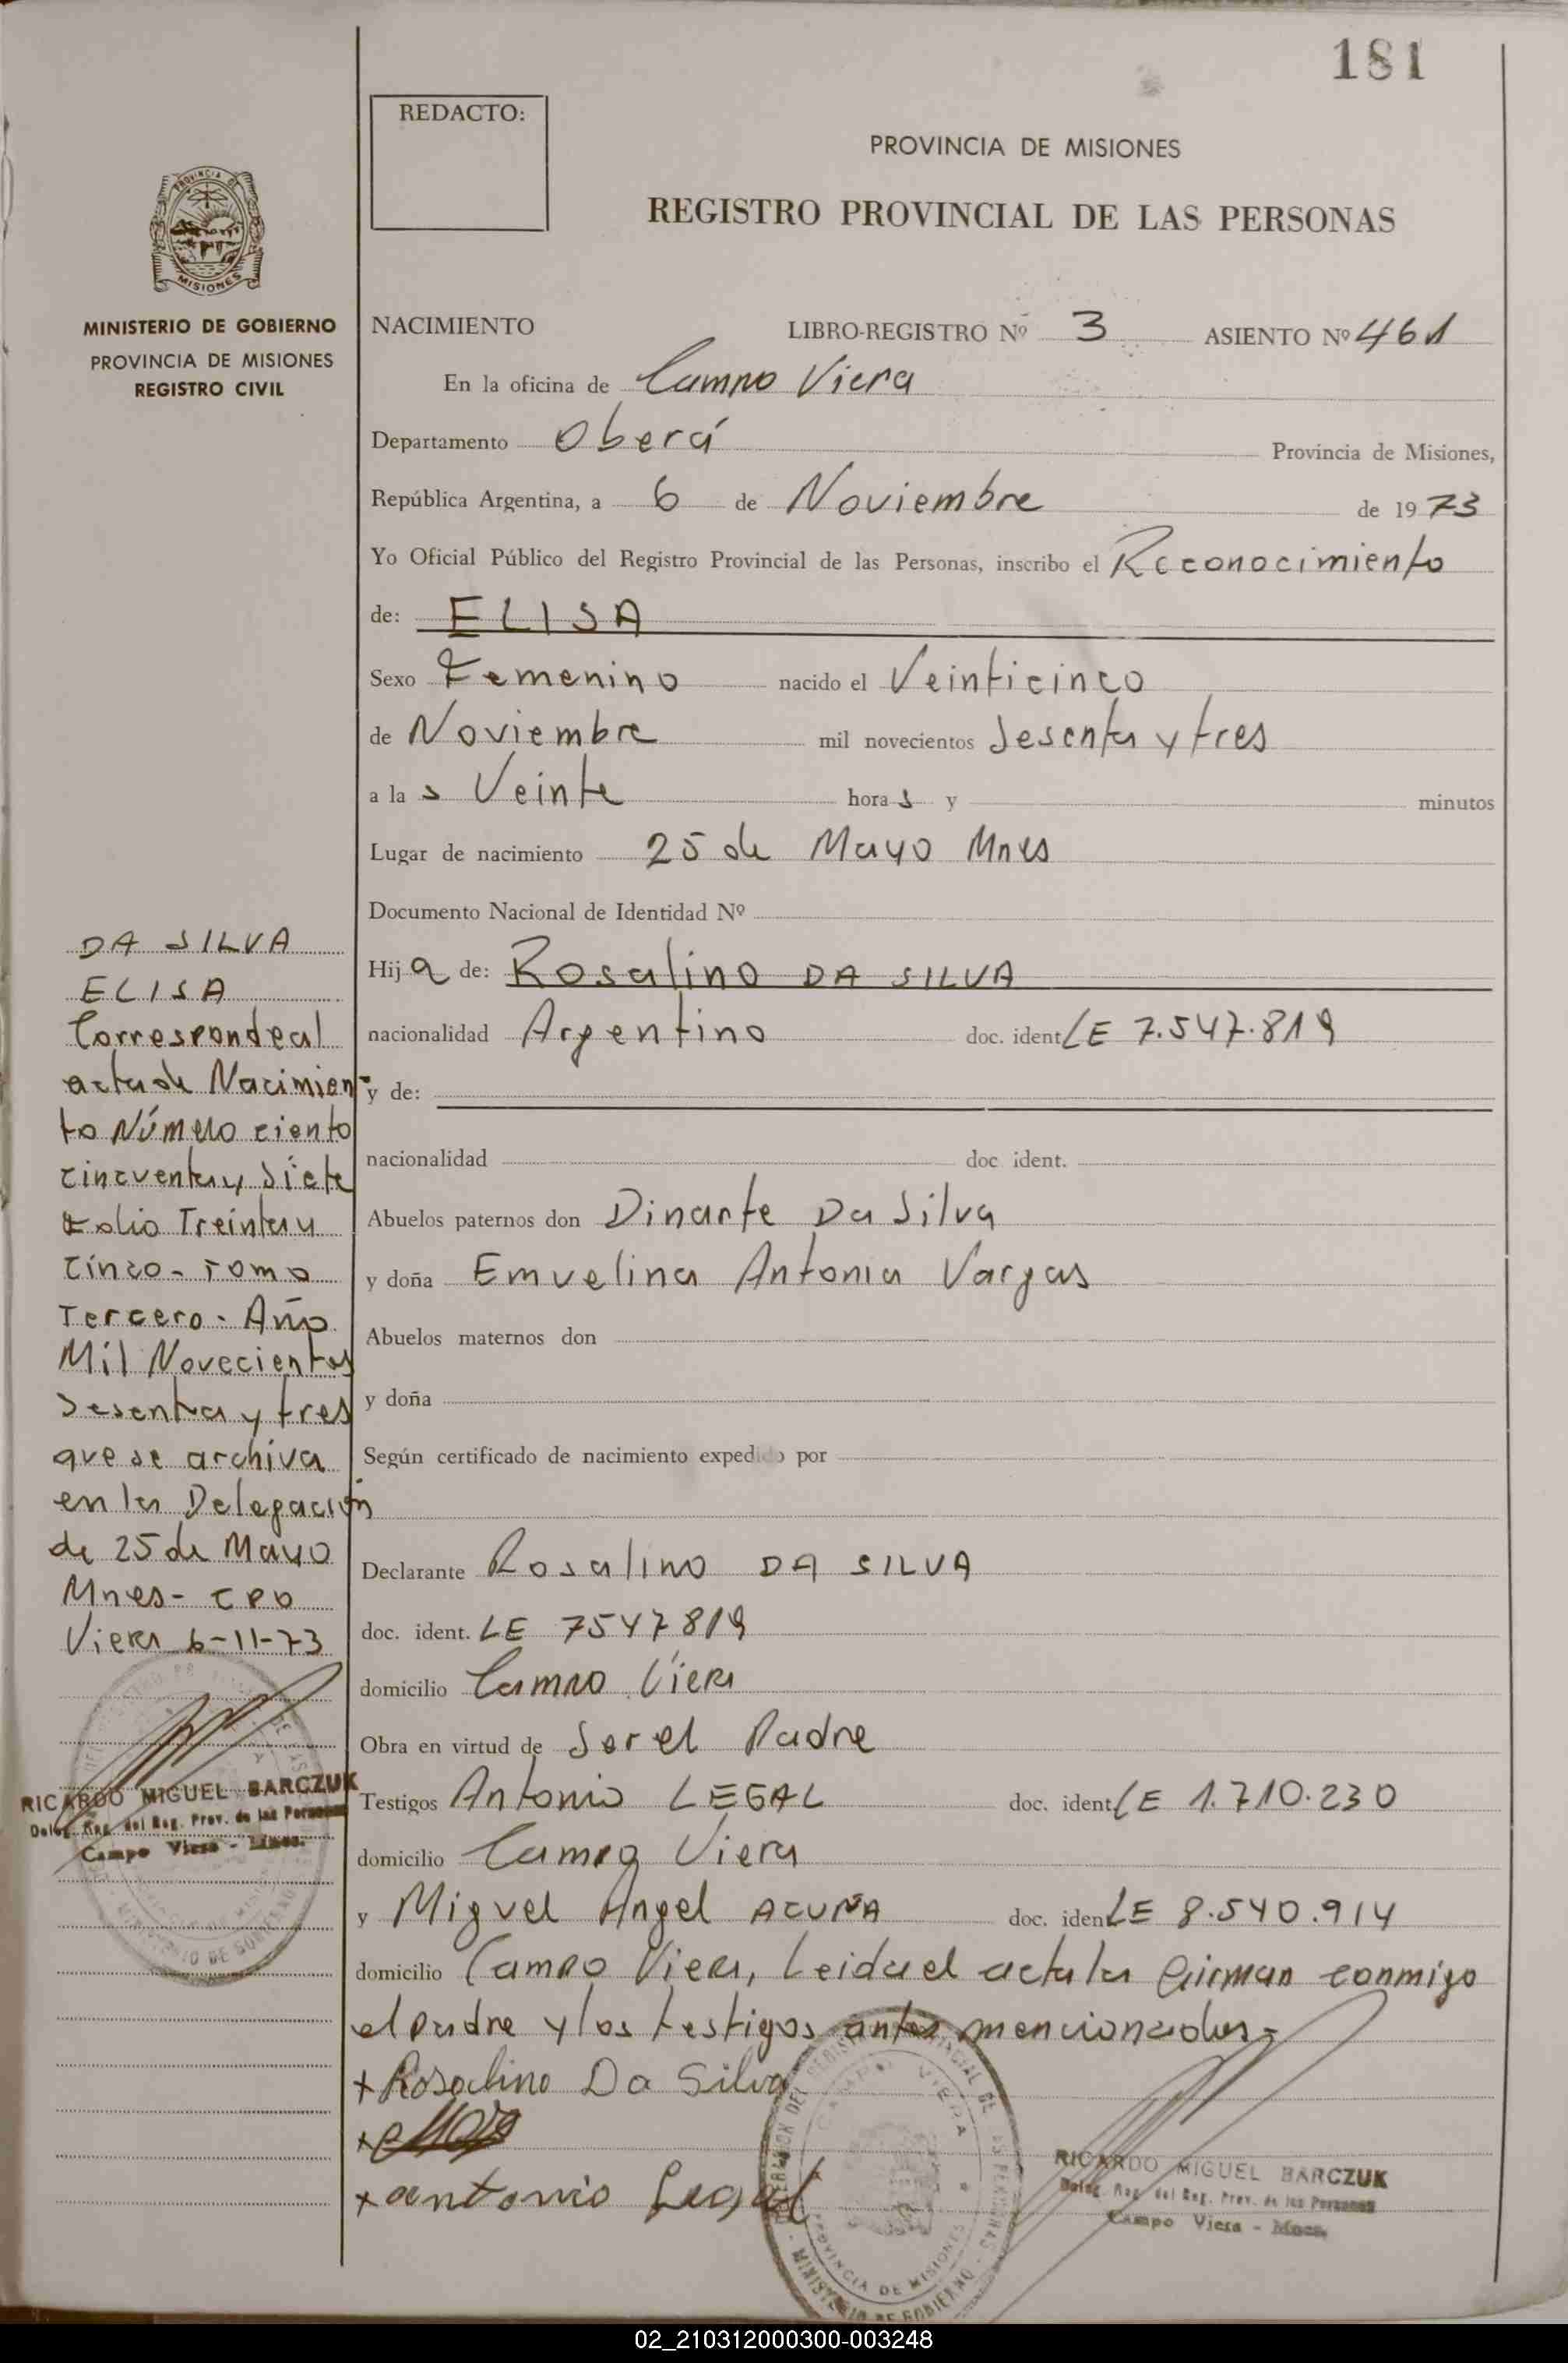 181
REDACTO:
PROVINCIA DE MISIONES
REGISTRO PROVINCIAL DE LAS PERSONAS
MISIONES
MINISTERIO DE GOBIERNO
PROVINCIA DE MISIONES
REGISTRO CIVIL
NACIMIENTO LIBRO-REGISTRO Nº 3 ASIENTO Nº 461
En la oficina de Campo Viera
Departamento Oberá Provincia de Misiones,
República Argentina, a 6 de Noviembre de 1973
Yo Oficial Público del Registro Provincial de las Personas, inscribo el Reconocimiento
de: ELISA
Sexo Femenino nacido el Veinticinco
de Noviembre mil novecientos Sesenta y tres
a las Veinte horas y minutos
Lugar de nacimiento 25 de Mayo Mnes
Documento Nacional de Identidad Nº
Hija de: Rosalino DA SILVA
nacionalidad Argentino doc. ident LE 7.547.819
y de:
nacionalidad doc ident.
Abuelos paternos don Dinarte Da Silva
y doña Emvelina Antonia Vargas
Abuelos maternos don
y doña
Según certificado de nacimiento expedido por
Declarante Rosalino DA SILVA
doc. ident. LE 7547819
domicilio Campo Viera
Obra en virtud de Ser el Padre
Testigos Antonio LEGAL doc. ident LE 1.710.230
domicilio Campo Viera
y Miguel Angel ACUÑA doc. iden LE 8.540.914
domicilio Campo Viera, Leida el acta la firman conmigo
el padre y los testigos antes mencionados-
+ Rosalino Da Silva
+ antonio Legal
RICARDO MIGUEL BARCZUK
Deleg. Reg. del Reg. Prov. de las Personas
Campo Viera - Mnes.
DA SILVA
ELISA
Corresponde al
acta de Nacimien-
to Número ciento
cincuenta y siete
Folio Treinta y
cinco - Tomo
Tercero - Año
Mil Novecientos
Sesenta y tres
que se archiva
en la Delegación
de 25 de Mayo
Mnes - CPO
Viera 6-11-73
RICARDO MIGUEL BARCZUK
Deleg. Reg. del Reg. Prov. de las Personas
Campo Viera - Mnes.
02_210312000300-003248